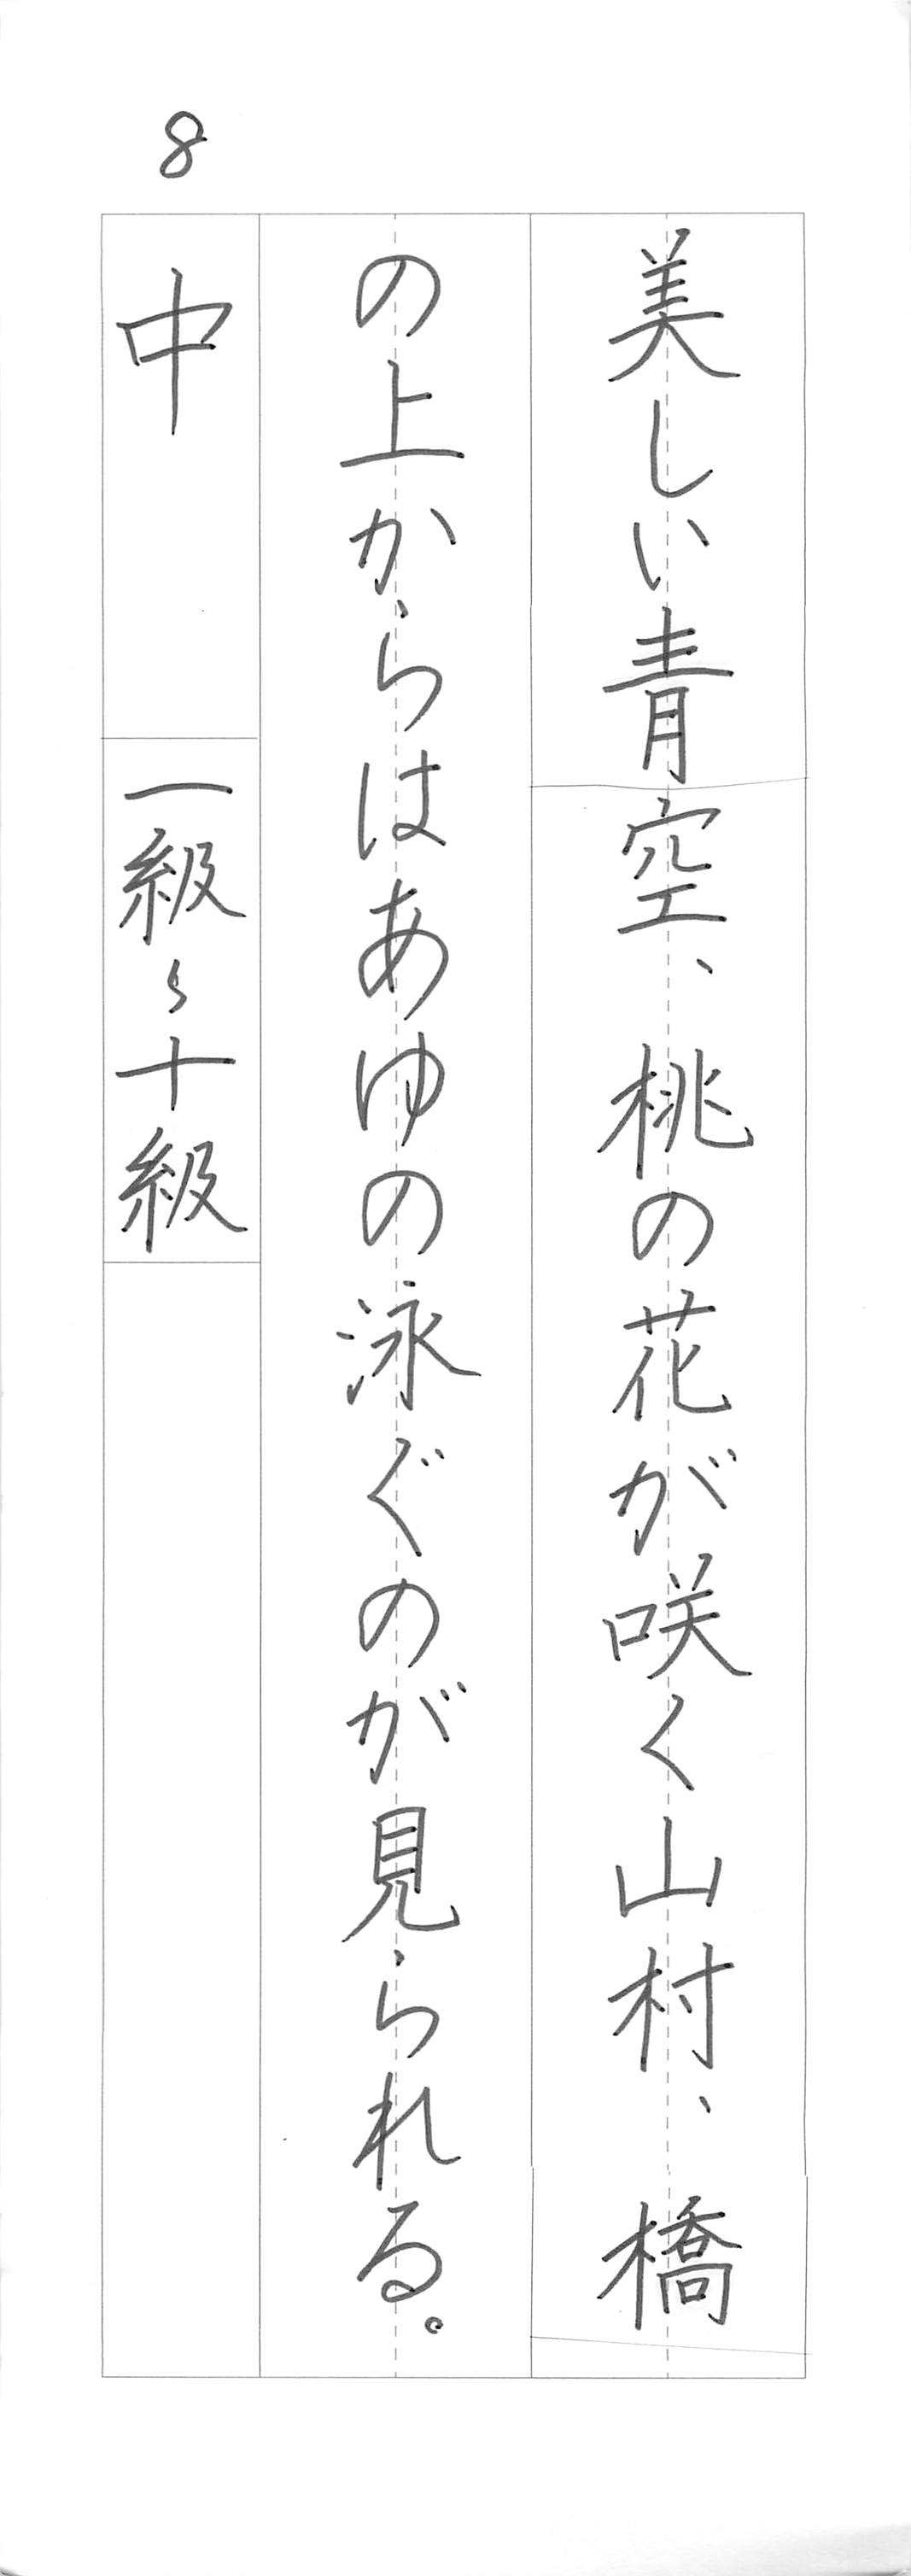 美しい青空、桃の花が咲く山村、橋
の上からはあゆの泳ぐのが見られる。
8
中
一級〜十級